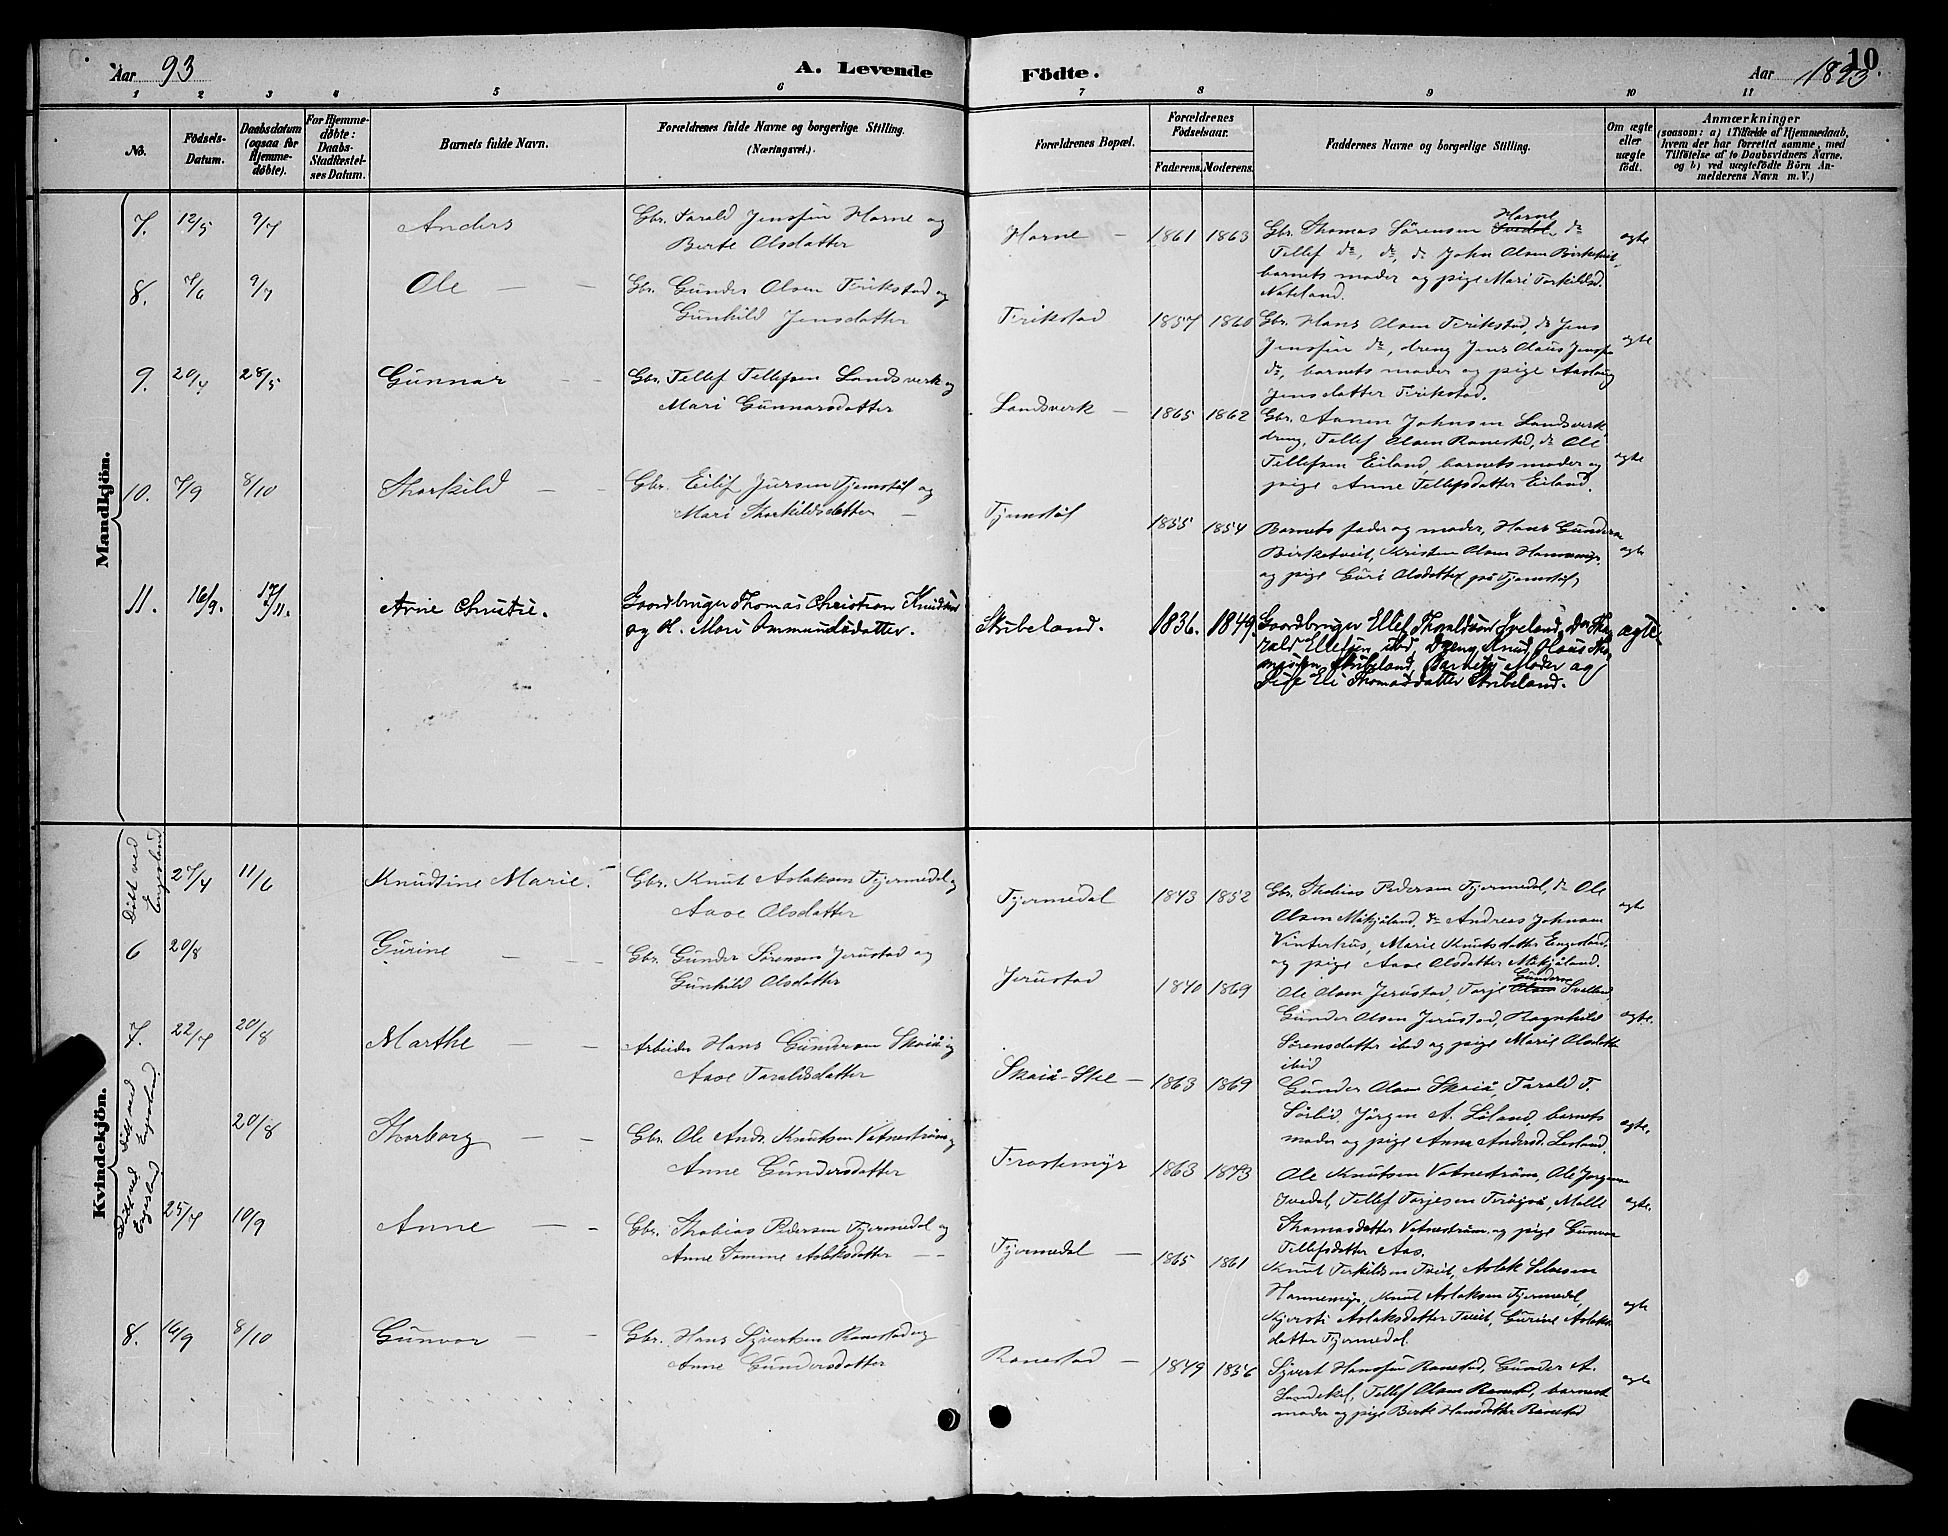 Aar 93
A. Levende
Födte.
Aar 1893.
10
1 2 3 4 5 6 7 8 9 10 11
No.
Födsels-Datum.
Daabsdatum (ogsaa for Hjemme-døbte).
For Hjemme-døbte: Daabs-Stadfæstel-ses Datum.
Barnets fulde Navn.
Forældrenes fulde Navne og borgerlige Stilling.
(Næringsvei.)
Forældrenes Bopæl.
Forældrenes Fødselsaar.
Faderens. Moderens.
Faddernes Navne og borgerlige Stilling.
Om ægte eller uægte födt.
Anmærkninger
(saasom: a) i Tilfælde af Hjemmedaab,
hvem der har forrettet samme, med
Tilföielse af to Daabsvidners Navne,
og b) ved uægtefödte Börn An-
melderens Navn m. V.)
Mandkjön.
7. 12/5 9/7 Anders
Gbr. Tarald Jenssen Horne og
Berte Olsdatter
Horne 1861 1863
Gbr. Thomas Sørensen Horne, do
Tellef do, do, do John Olsen Birketveit,
barnets moder og pige Mari Torkildsd.
Nateland.
ægte
8. 7/6 9/7 Ole
Gbr. Gunder Olsen Frikstad og
Gunhild Jensdatter
Frikstad 1857 1860
Gbr. Hans Olsen Frikstad, do Jens
Jenssen do, dreng Jens Olaus Jenss.
do, barnets moder og pige Aaslaug
Jensdatter Frikstad.
ægte
9. 20/4 28/5 Gunnar
Gbr. Tellef Tellefsen Landsverk og
Mari Gunnarsdatter
Landsverk 1865 1862
Gbr. Aanen Johnsen Landsverk
dreng, Tellef Olsen Ranestad, do Ole
Tellefsen Eiland, barnets moder og
pige Anne Tellefsdatter Eiland.
ægte
10. 7/9 8/10 Thorkild
Gbr. Eilif Jursen Tjomstøl og
Mari Thorkildsdatter
Tjomstøl 1855 1854
Barnets fader og moder, Hans Gunders.
Birketveit, Kristen Olsen Hannemyr
og pige Guri Olsdatter på Tjomstøl,
ægte
11. 16/9. 17/11. Arne Christie.
Gaardbruger Thomas Christian Knudsen
og H. Mari Ommundsdatter.
Skibeland. 1836. 1849.
Gaardbruger Ellef Thoraldson Iveland, do Tho-
rald Ellefsen ibd, Dreng Knud Hans Tho-
massen Skibeland, Barnets Moder og
Pige Eli Thomasdatter Skibeland.
ægte
Kvindekjön.
Døbt ved Engesland
27/4 11/6 Knudsine Marie.
Gbr. Knut Aslaksen Fjermedal og
Aase Olsdatter
Fjermedal 1843 1852
Gbr. Thobias Pedersen Fjermedal, do Ole
Olsen Mikjåland, do Andreas Johnsen
Vinterhus, Marie Knutsdatter Engesland,
og pige Aase Olsdatter Mikjåland.
ægte
6 20/8 Gurine
Gbr. Gunder Sørensen Jerustad og
Gunhild Olsdatter
Jerustad 1840 1869
Ole Olsen Jerustad, Tarje Gunders. Sveland,
Gunder Olsen Jerustad, Ragnhild
Sørensdatter ibid og pige Marie Olsdatter
ibid
ægte.
7. 22/7 20/8 Marthe
Arbeider Hans Gundersen Skaiå og
Aase Taraldsdatter
Skaiå-Stel 1863 1869
Gunder Olsen Skaiå, Tarald T.
Sørlid, Jørgen A. Liland, barnets
moder og pige Anna Andersd. Lisland,
ægte.
Døbt ved Engesland
20/8 Thorborg
Gbr. Ole Andr. Knutsen Vatnestrøm og
Anne Gundersdatter
1863 1873
Ole Knutsen Vatnestrøm, Ole Jørgens.
Ivedal, Tellef Tarjesen Terøyså, Malli
Thomasdatter Vatnestrøm, og pige Gunvor
Tellefsdatter Aas.
ægte.
Døbt ved Engesland
25/7 10/9 Anne
Gbr. Thobias Pedersen Fjermedal og
Anne Tomine Aslaksdatter
Fjermedal 1865 1861
Knut Terkildsen Tveit, Aslak Salvesen
Hannemyr, Knut Aslaksen Fjermedal,
Kjersti Aslaksdatter Tveit, Gurine Aslaks-
datter Fjermedal.
ægte
8. 16/9 8/10 Gunvor
Gbr. Hans Syvertsen Ranestad og
Anne Gundersdatter
Ranestad 1849 1856
Syvert Hanssen Ranestad, Gunder A.
Landskil, Tellef Olsen Ranestad, barnets
moder og pige Berte Hansdatter Ranestad
ægte